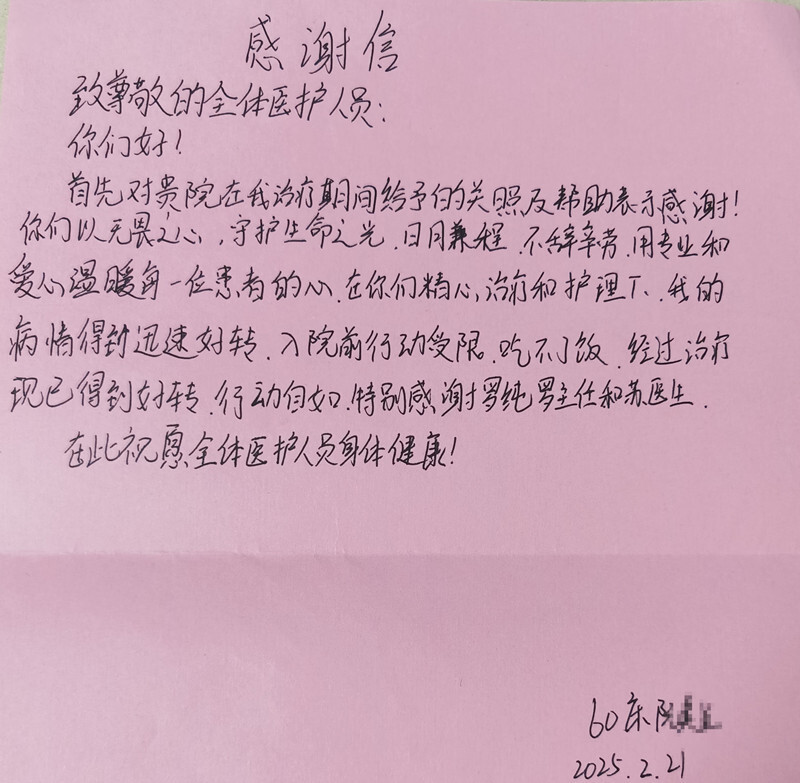 感谢信
致尊敬的全体医护人员：
你们好！
首先对贵院在我治疗期间给予的关照及帮助表示感谢！
你们以无畏之心，守护生命之光，日月兼程，不辞辛劳，用专业和
爱心温暖每一位患者的心，在你们精心治疗和护理下，我的
病情得到迅速好转，入院前行动受限，吃不了饭，经过治疗
现已得到好转，行动自如，特别感谢罗纯罗主任和苏医生．
在此祝愿全体医护人员身体健康！
60床
2025.2.21